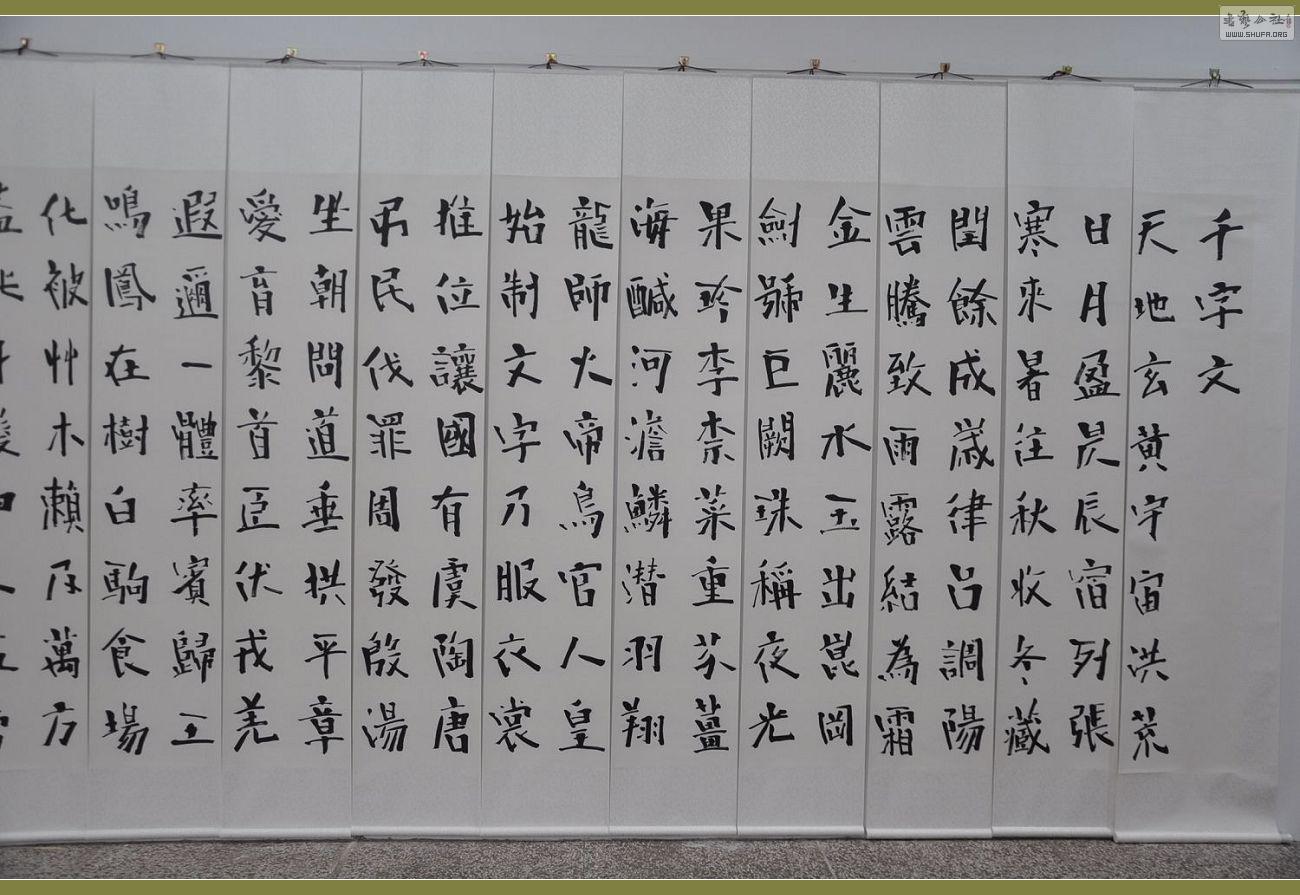 千字文
天地玄黃宇宙洪荒
日月盈昃辰宿列張
寒來暑往秋收冬藏
閏餘成歲律吕調陽
雲騰致雨露結為霜
金生麗水玉出崑岡
劍號巨闕珠稱夜光
果珍李柰菜重芥薑
海醎河澹鱗潛羽翔
龍師火帝鳥官人皇
始制文字乃服衣裳
推位讓國有虞陶唐
弔民伐罪周發殷湯
坐朝問道垂拱平章
愛育黎首臣伏戎羌
遐邇一體率賓歸王
鳴鳳在樹白駒食場
化被艸木賴及萬方
書藝公社
WWW.SHUFA.ORG